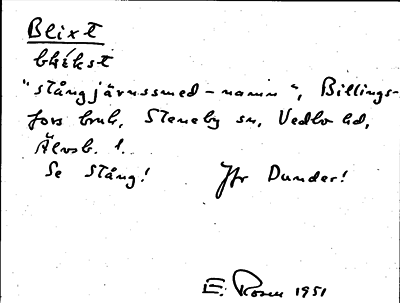 Blixt
blikst
"stångjärnssmed-namn", Billings-
fors bruk, Steneby sn, Vedbo hd,
Älvsb. l.
Se Stång! Jfr Dunder!
E. Rosen 1951